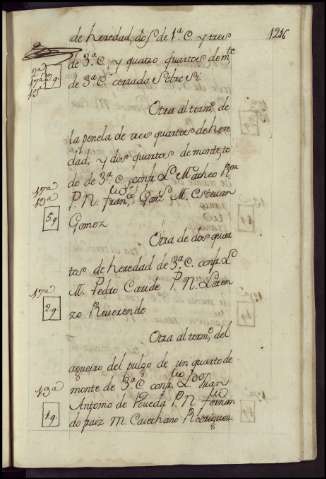 1216
de heredad, dos de 1ª C. y tres
de 3ª C. y quatro quartos de mte
de 3ª C. cerrada sobre si
Otra al termo. de
la penela de tres quartos de here
dad, y dos quartos de monte, to
do de 3ª C. confª L. Matheo Rom
P. N. Franco. Gonz. M. Estevan
Gomez
5q
Otra de dos quar
tos de heredad de 3ª C. confª L.
M. Pedro Caude P. N. Loren
zo Reverendo
17na
2q
Otra al termo. del
agueiro del pulgo de un quarto de
monte de 3ª C. confª L. Juan
Antonio de Puceda P. N. Fernan
do paez M. Caiethano Rodriguez
13ª
1q